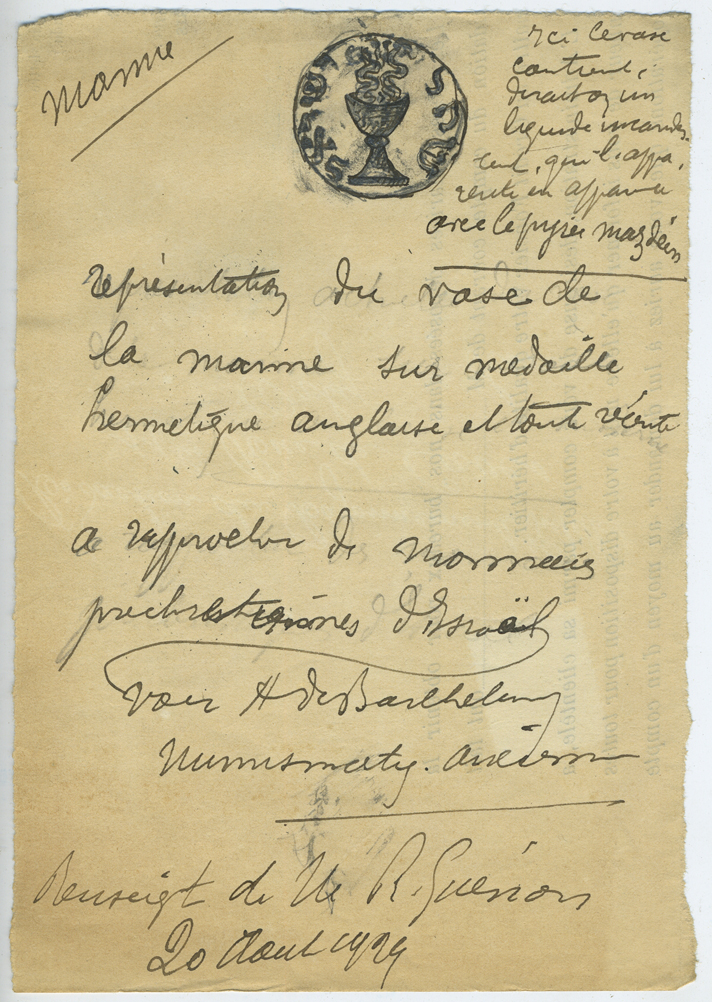 manne
ici le vase
contient,
dirait on un
liquide incandes
cent, qui l'appa,
rente en apparence
avec le pyrée mazdéen
représentation du vase de
la manne sur medaille
hermetique anglaise et toute récente
a rapprocher de monnaies
prechretiennes d'Israël
voir A de Barthelemy
Numismatiq. ancienne
Renseigt de M R. Guénon
20 Aout 1929